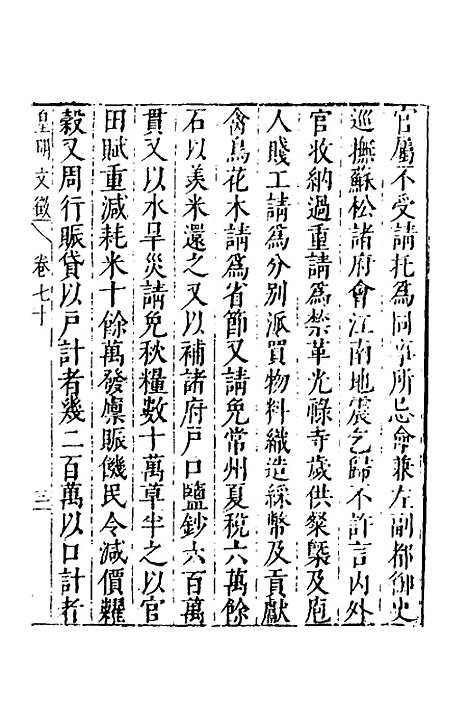 官屬不受請托爲同事所忌命兼左副都御史
巡撫蘇松諸府會江南地震乞歸不許言内外
官收納過重請爲禁革光祿寺歲供粲糳及庖
人賤工請爲分別派買物料織造綵幣及貢獻
禽鳥花木請爲省節又請免常州夏稅六萬餘
石以羨米還之又以補諸府戸口鹽鈔六百萬
貫又以水旱災請免秋糧數十萬草半之以官
田賦重減耗米十餘萬發廩賑饑民令減價糶
穀又周行賑貸以戸計者幾二百萬以口計者
皇明文徵 卷七十 三